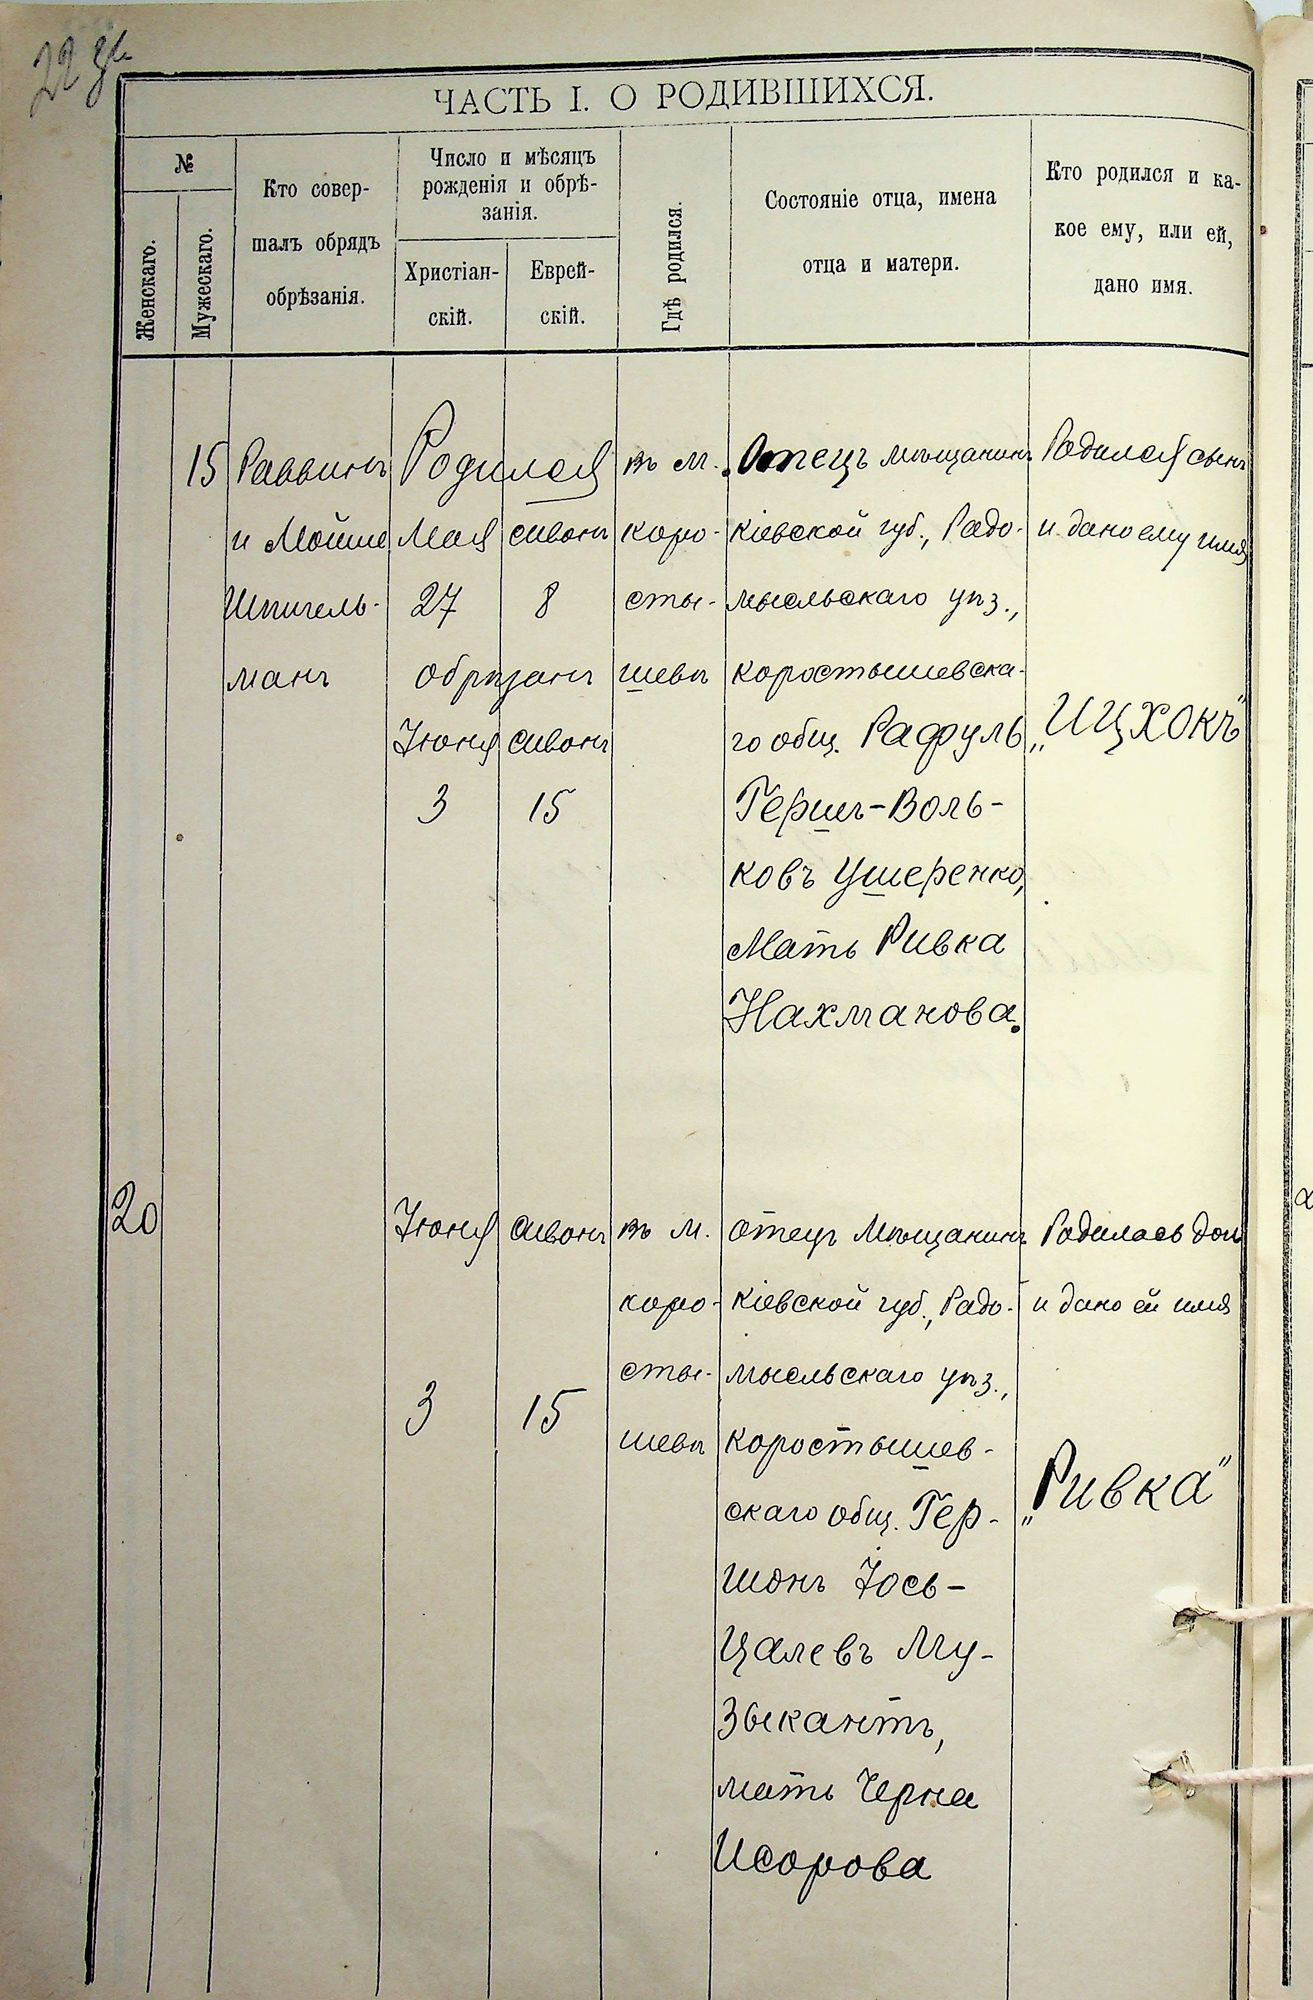 22
ЧАСТЬ I. О РОДИВШИХСЯ.
№
Женскаго.
Мужескаго.
Кто совер-
шалъ обрядъ
обрѣзанія.
Число и мѣсяцъ
рожденія и обрѣ-
занія.
Христіан-
скій.
Еврей-
скій.
Гдѣ родился.
Состояніе отца, имена
отца и матери.
Кто родился и ка-
кое ему, или ей,
дано имя.
15
Раввинъ
и Мойше
Шпигель-
манъ
Родился
Мая сивонъ
27 8
обрѣзанъ
Іюня сивонъ
3 15
въ м.
коро-
сты-
шевѣ
Отецъ мѣщанинъ
Кіевской губ., Радо-
мысльскаго уѣз.,
коростышевска-
го общ. Рафуль
Гершъ-Воль-
ковъ Ушеренко,
Мать Ривка
Нахманова.
Родился сынъ
и дано ему имя
„ИЦХОКЪ"
20
Іюня сивонъ
3 15
въ м.
коро-
сты-
шевѣ
отецъ Мѣщанинъ
Кіевской губ., Радо-
мысльскаго уѣз.,
Коростышев-
скаго общ. Гер-
шонъ Іось-
Цалевъ Му-
зыкантъ,
мать Черна
Исорова
Родилась дочь
и дано ей имя
„Ривка"